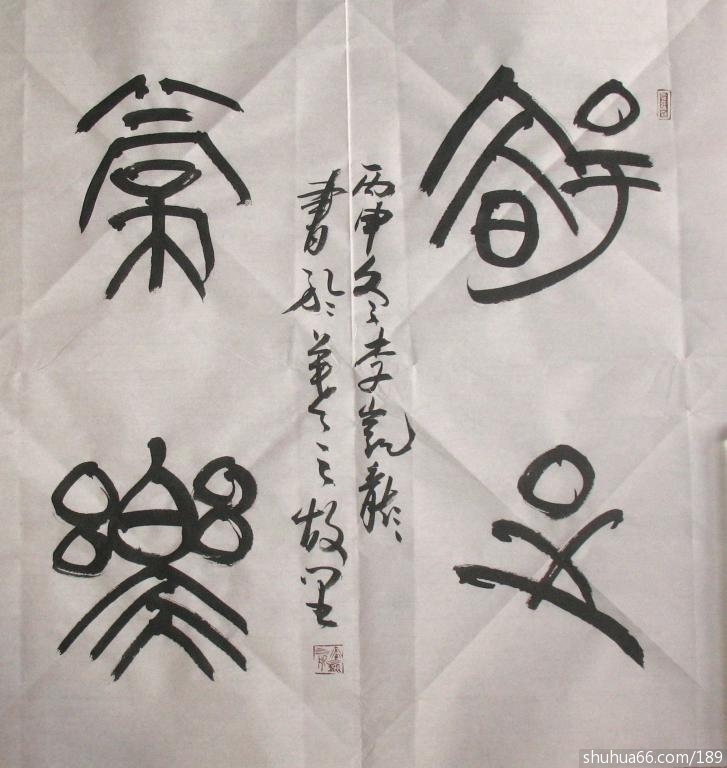 知足
常樂
丙申冬李凱龍
書於羲之故里
shuhua66.com/189